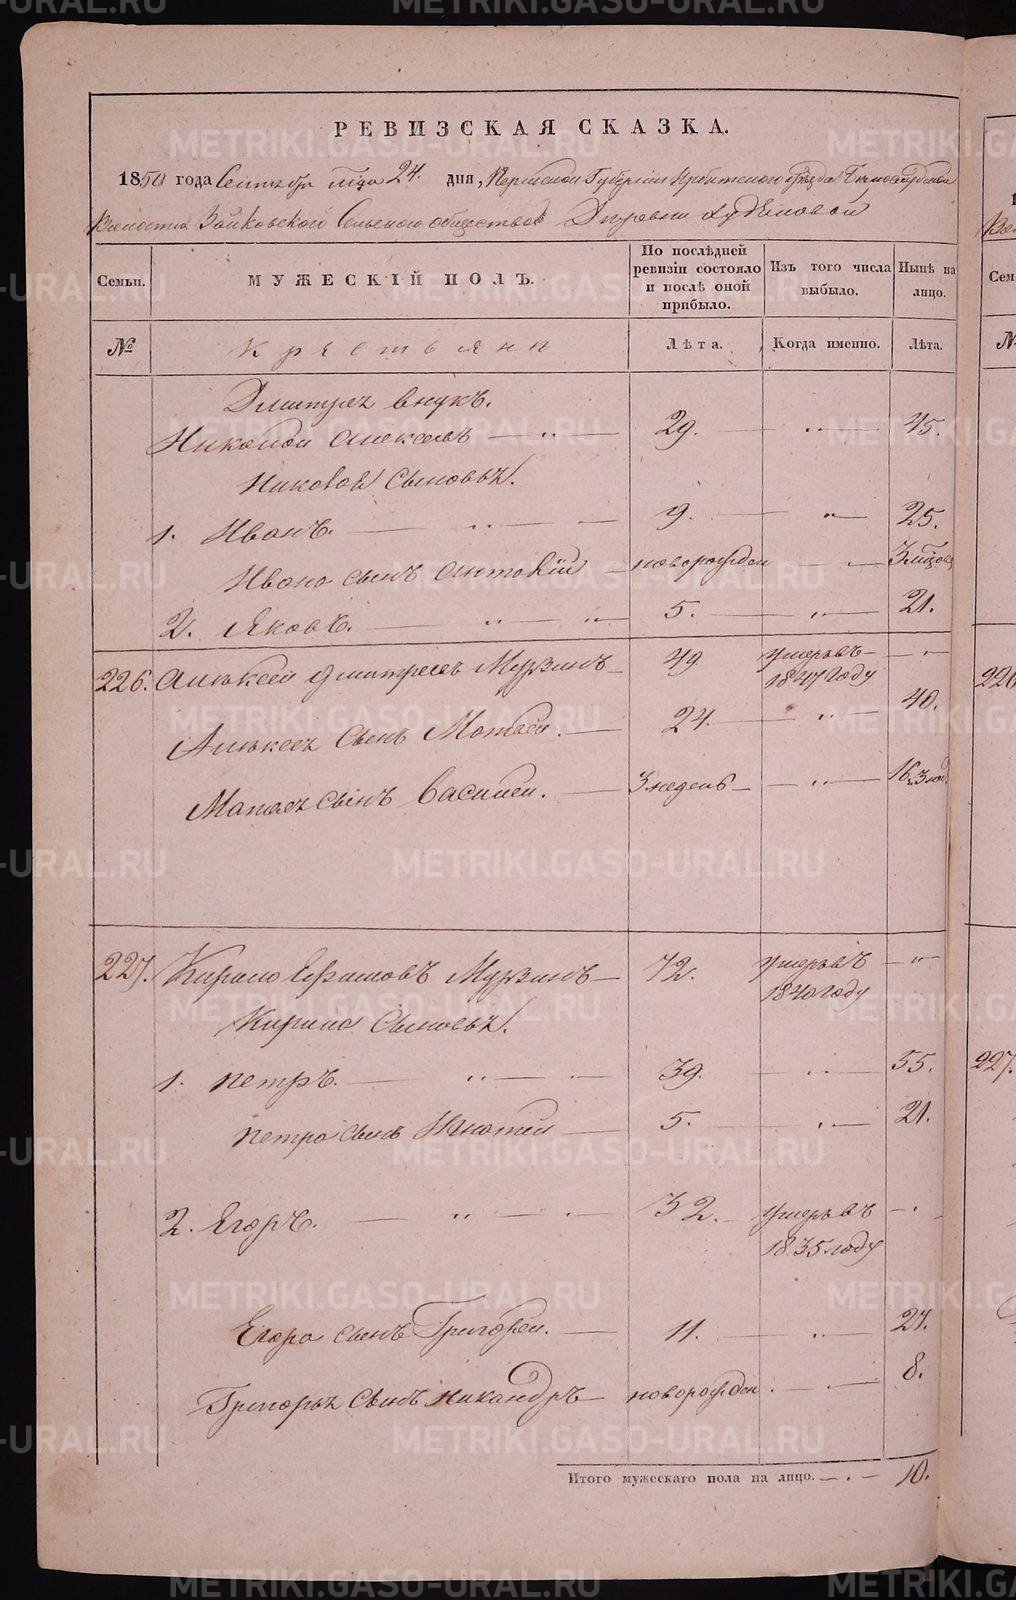 РЕВИЗСКАЯ СКАЗКА.
1850 года Сентября мца 24. дня, Пермской Губернiи Ирбитского уѣзда
Волости Зайковского Сельского общества Деревни Худяковой
Семьи.
МУЖЕСКIЙ ПОЛЪ.
По послѣдней ревизiи состояло и послѣ оной прибыло.
Изъ того числа выбыло.
Нынѣ на лицо.
№
Крестьяни
Лѣта.
Когда именно.
Лѣта.
Дмитрея внукъ.
Николай Алексеевъ — 29. — " — 45.
Николая Сыновья.
1. Иванъ. — " — 9. — " — 25.
Ивана сынъ — новорожден — " — 3
2. Яковъ. — " — " 5. — " — 21.
226. Алексей Дмитреевъ Мурзинъ — 49 умеръ въ — " —
1847 году
Алексея Сынъ Матвей. — 24. — " — 40.
Матвея Сынъ Василей. — 3 недель — " — 16.
227. Кирило Ефимовъ Мурзинъ — 72. умеръ въ — " —
1840 году
Кирила Сыновья.
1. Петръ. — " — 39. — " — 55.
Петра сынъ — 5. — " — 21.
2. Егоръ. — " — 32. — умеръ въ — " —
1835 году
Егора сынъ Григорей. — 11. — " — 27.
Григорья Сынъ Никандръ — новорожден. — " — 8.
Итого мужескаго пола на лицо. — " — 10.
METRIKI.GASO-URAL.RU